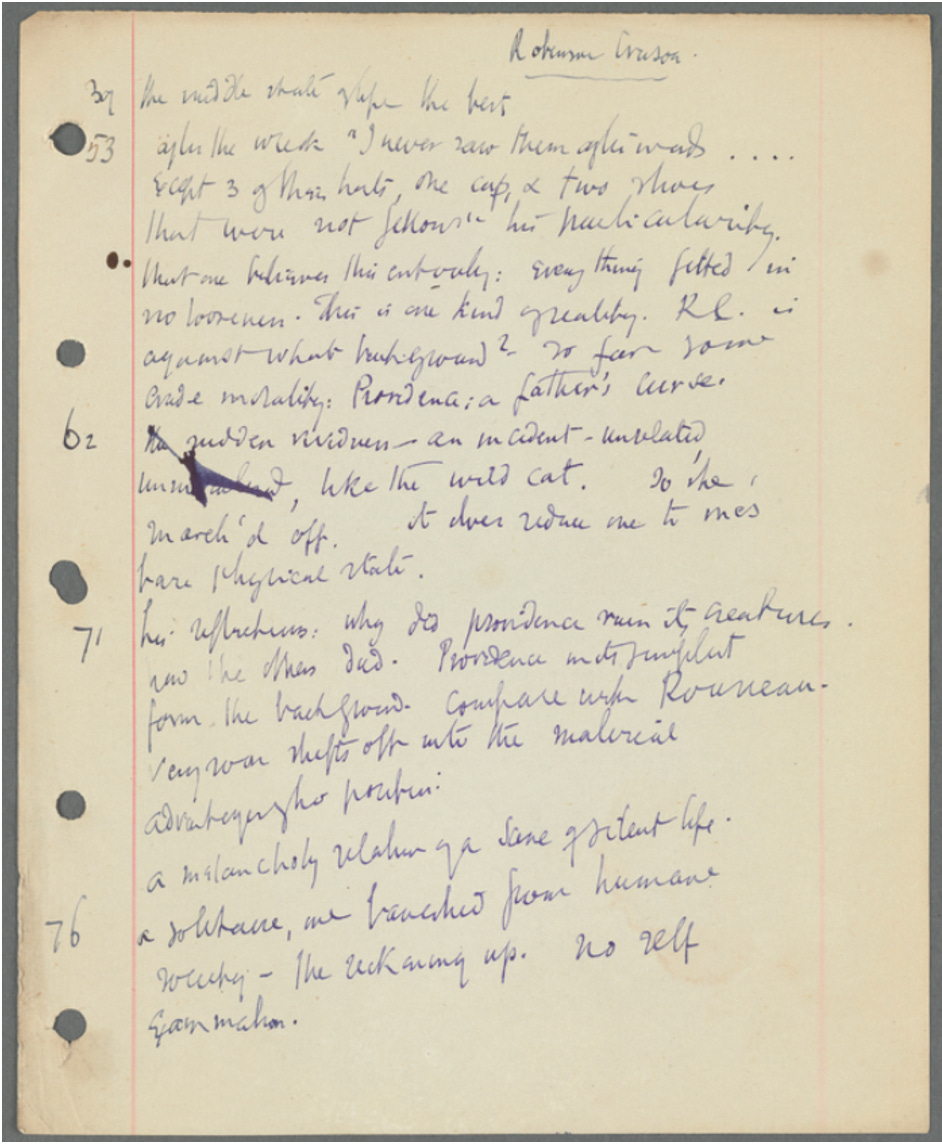 Robinson Crusoe.
39 the middle state of life the best
53 after the wreck "I never saw them afterwards ....
except 3 of their hats, one cap, & two shoes
that were not fellows" his particularity.
that one believes this entirely: everything fitted in
no looseness. This is one kind of reality. R.C. is
against what background? so far some
crude morality: Providence: a father's curse.
62 sudden vividness - an incident - unrelated,
like the wild cat. So she
march'd off. it does reduce one to ones
bare physical state.
71 his reflections: why did providence ruin its creatures.
the others did. Providence in its simplest
form the background. Compare with Rousseau.
Very soon shifts off into the material
advantages of his position:
a melancholy relation of a scene of silent life.
76 a solitaire, one banished from humane
society - the reckoning up. no self
examination.